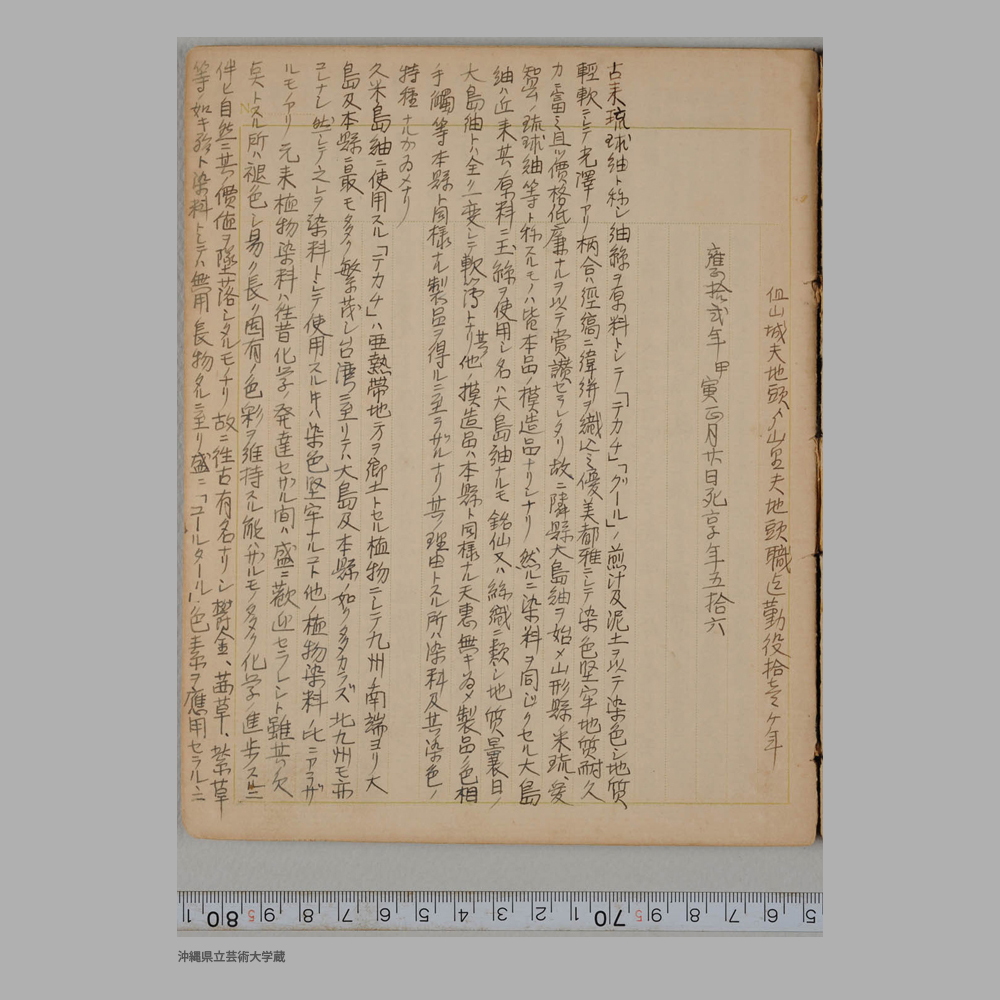 但山城夫地頭ゟ山里夫地頭職迄勤役拾壱ヶ年
雍正拾弐年甲寅正月廿日死享年五拾六
古来琉球紬ト称シ紬絲ヲ原料トシテ「テカチ」「グール」ノ煎汁及泥土ヲ以テ染色シ地質
軽軟ニシテ光澤アリ柄合ハ經縞ニ緯絣ヲ織込ミ優美都雅ニシテ染色堅牢地質耐久
力ニ富ミ且ツ價格低廉ナルヲ以テ賞讃セラレタリ故ニ隣縣大島紬ヲ始メ山形縣ノ米琉、愛
智ノ琉球紬等ト称スルモノハ皆本品ノ模造品ナリシナリ然ルニ染料ヲ同じクセル大島
紬ハ近来其ノ原料ニ玉絲ヲ使用シ名ハ大島紬ナルモ銘仙又ハ絲織ニ類シ地質曩日ノ
大島紬トハ全ク一変シテ軟薄トナリ其他ノ摸造品ハ本縣ト同様ナル天恵無キ為メ製品ノ色相
手觸等本縣ト同様ナル製品ヲ得ルニ至ラザルナリ其ノ理由トスル所ハ染料及其ノ染色ノ
特種ナルガ為メナリ
久米島紬ニ使用スル「テカチ」ハ亜熱帯地方ヲ郷土トセル植物ニシテ九州ノ南端ヨリ大
島及本縣ニ最モ多ク繁茂シ台湾ニ至リテハ大島及本縣ノ如ク多カラズ北九州モ亦
コレナシ然シテ之レヲ染料トシテ使用スル片ハ染色堅牢ナルコト他ノ植物染料ノ比ニアラザ
ルモノアリ元来植物染料ハ往昔化学ノ発達セザル間ハ盛ニ歓迎セラレシト雖其ノ欠
点トスル所ハ褪色シ易ク長ク固有ノ色彩ヲ維持スル能ハザルモノ多ク化学ノ進歩スルニ
伴ヒ自然ニ其ノ價値ヲ墜落シタルモノナリ故ニ往古有名ナリシ欝金、茜草、紫草
等ノ如キ殆ト染料トシテハ無用ノ長物タルニ至リ盛ニ「コールタール」ノ色素ヲ應用セラルニ
80 9 8 7 6 5 4 3 2 1 70 9 8 7 6 5
沖縄県立芸術大学蔵